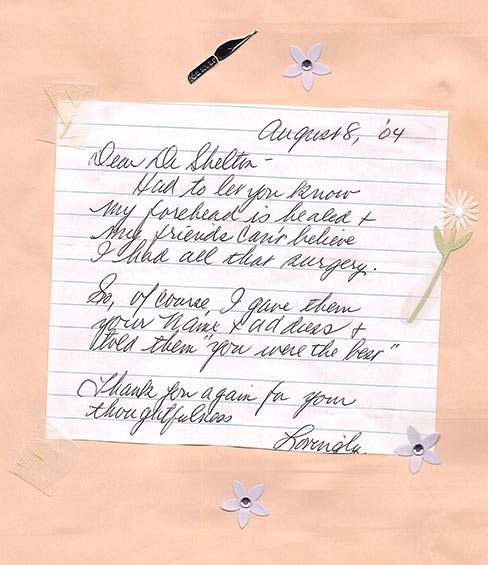 August 8, '04
Dear Dr Shelton -
Had to let you know
my forehead is healed +
my friends can't believe
I had all that surgery.
So, of course, I gave them
your name + address +
told them "you were the best"
Thank you again for your
thoughtfulness
Lovingly.